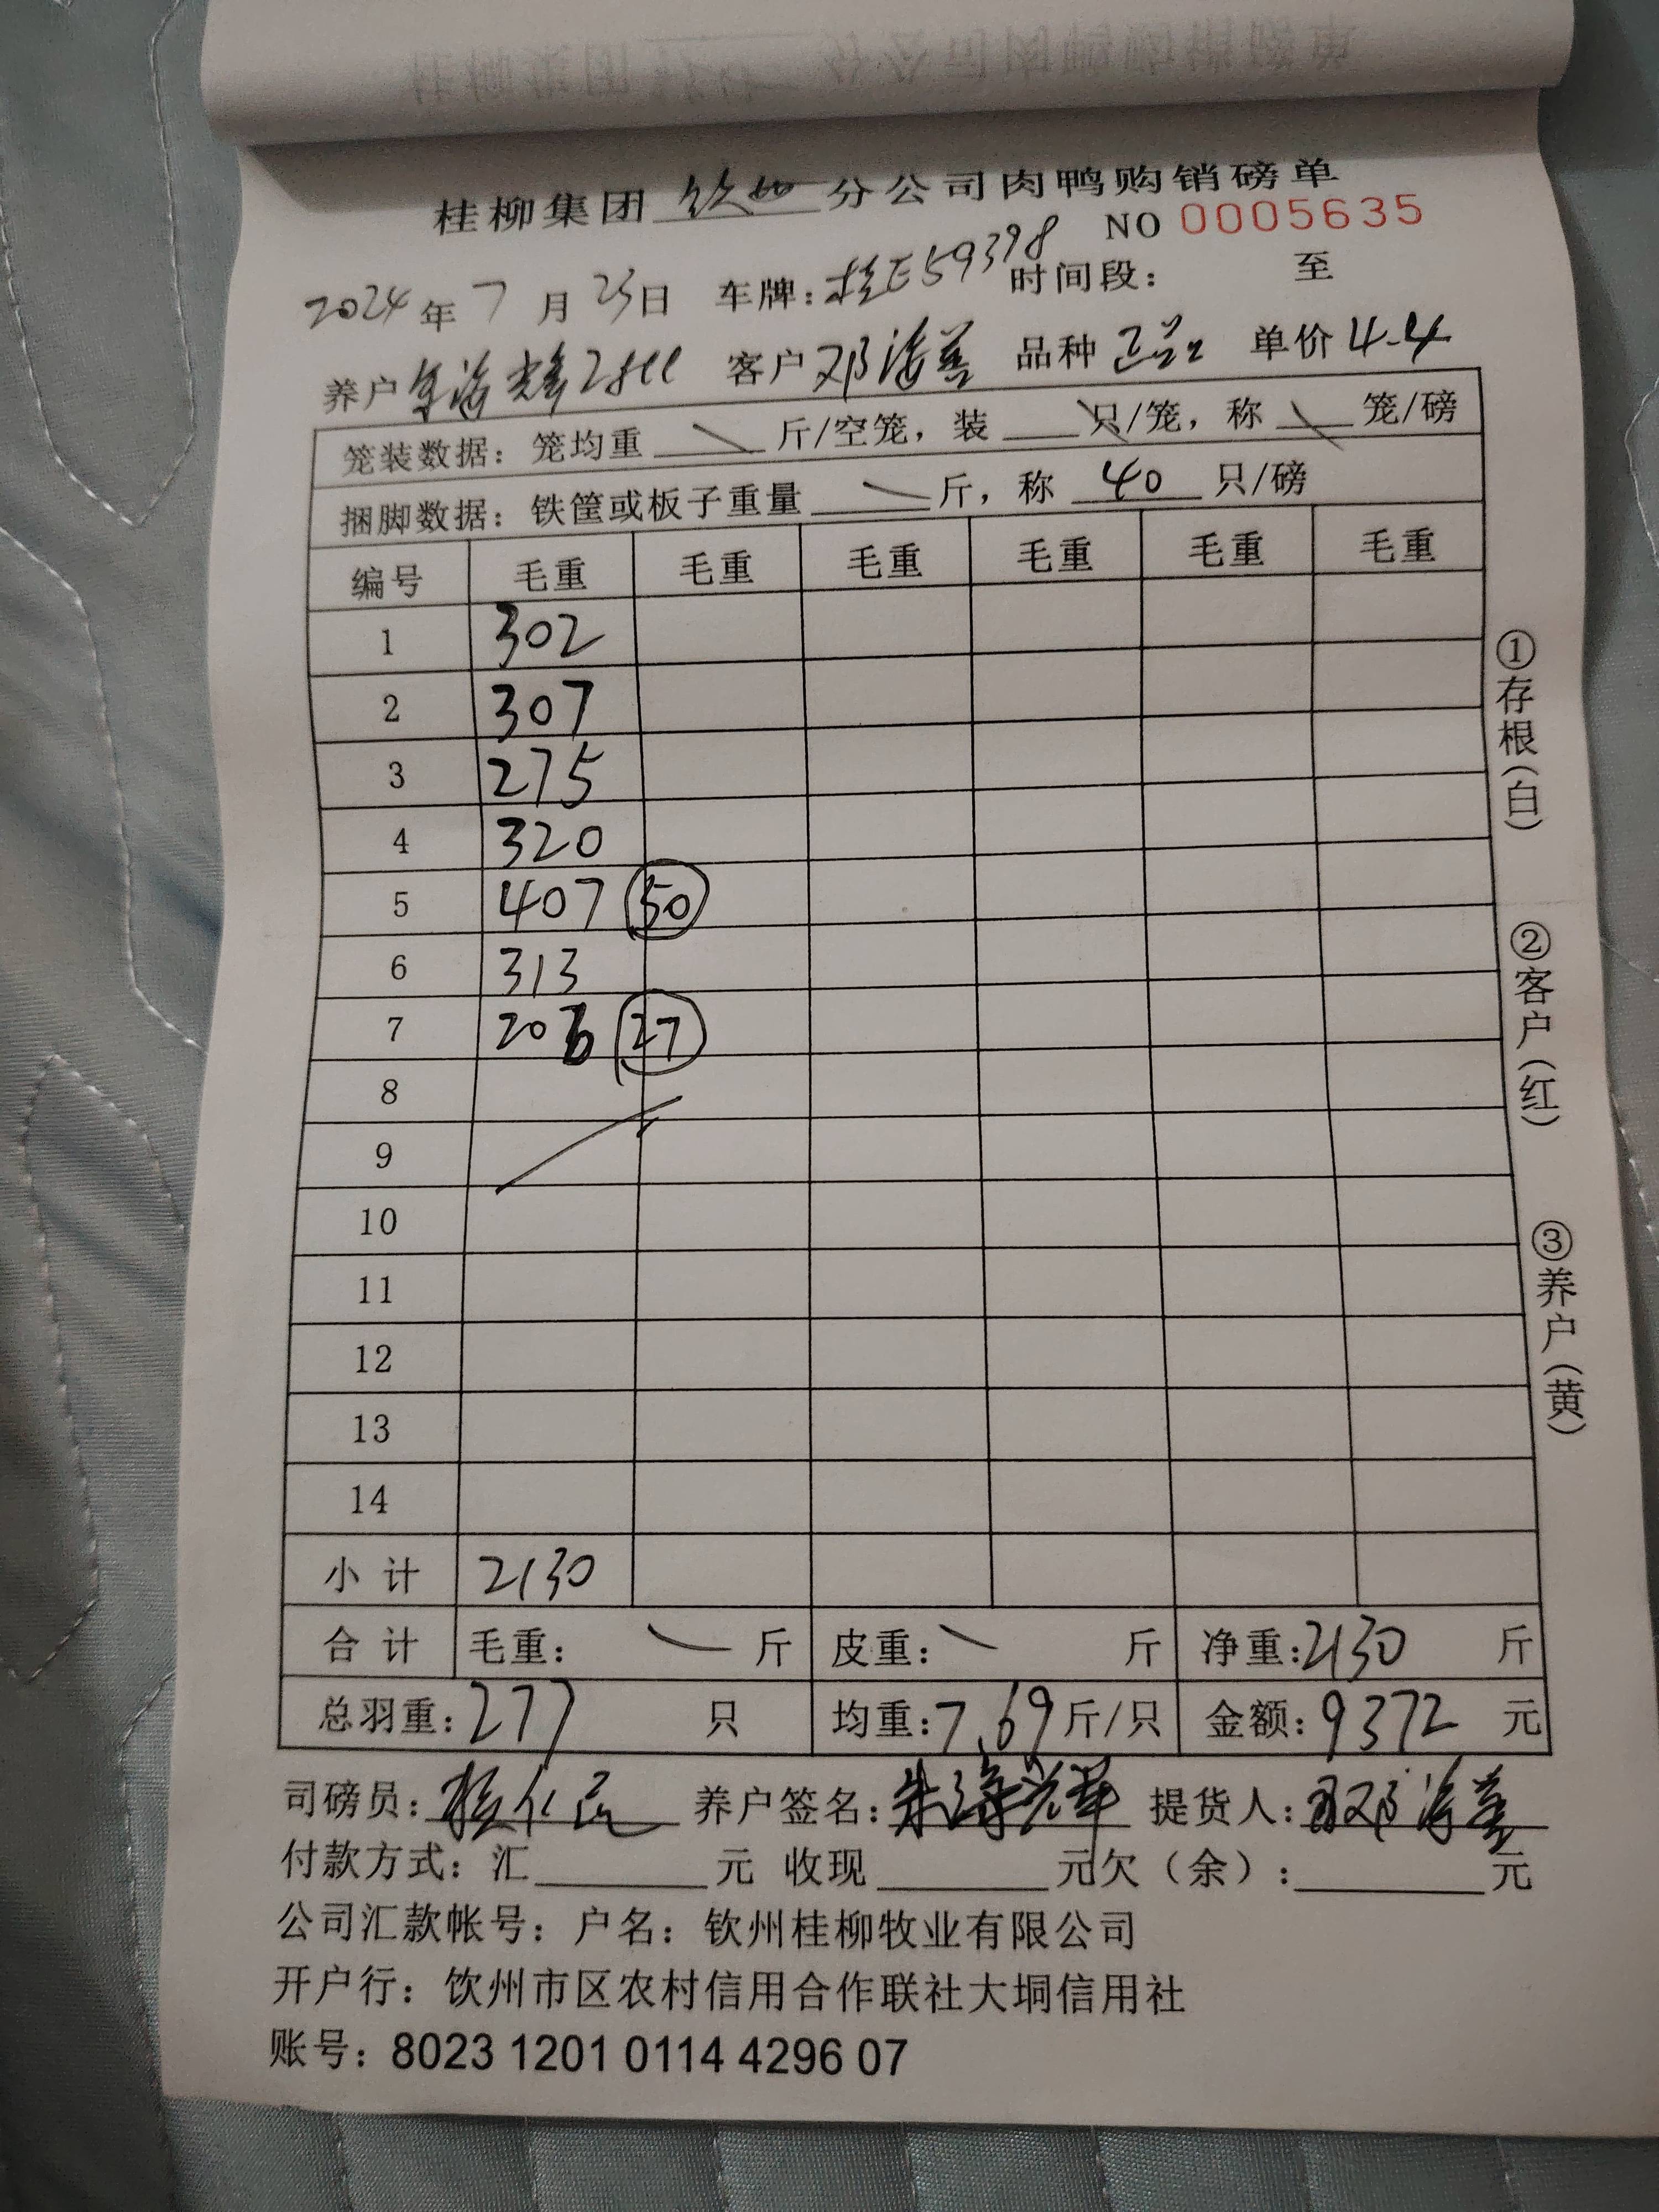 桂柳集团 钦州 分公司肉鸭购销磅单
NO 0005635
2024年7月23日 车牌:桂E59398 时间段: 至
养户 朱海辉 客户 邓海善 品种 正品 单价 4.4
笼装数据:笼均重 斤/空笼,装 只/笼,称 笼/磅
捆脚数据:铁筐或板子重量 斤,称 40 只/磅
编号 毛重 毛重 毛重 毛重 毛重 毛重
1 302
2 307
3 275
4 320
5 407 50
6 313
7 206 27
8
9
10
11
12
13
14
小计 2130
合计 毛重: 斤 皮重: 斤 净重:2130 斤
总羽重:277 只 均重:7.69斤/只 金额:9372 元
司磅员: 养户签名:朱海辉 提货人:邓海善
付款方式:汇 元 收现 元欠(余): 元
公司汇款帐号:户名:钦州桂柳牧业有限公司
开户行:钦州市区农村信用合作联社大垌信用社
账号:8023 1201 0114 4296 07
①存根(白)
②客户(红)
③养户(黄)